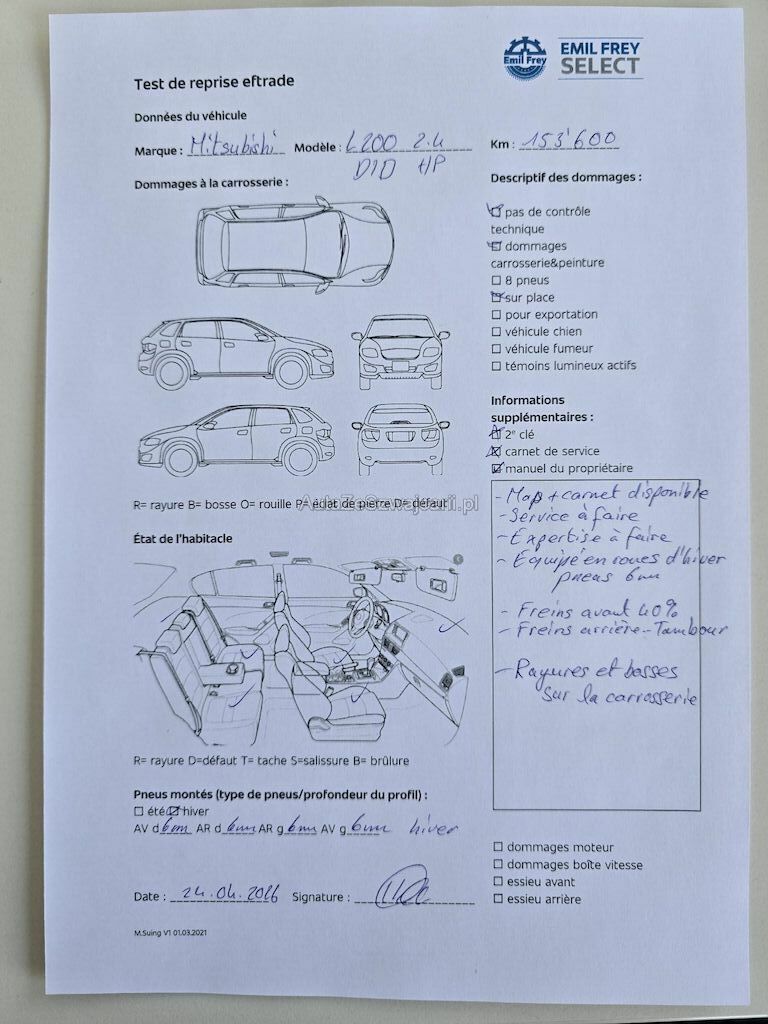 Emil Frey
EMIL FREY
SELECT
Test de reprise eftrade
Données du véhicule
Marque : Mitsubishi Modèle : L200 2.4 Km : 153'600
DID HP
Dommages à la carrosserie :
Descriptif des dommages :
pas de contrôle
technique
dommages
carrosserie&peinture
8 pneus
sur place
pour exportation
véhicule chien
véhicule fumeur
témoins lumineux actifs
Informations
supplémentaires :
2e clé
carnet de service
manuel du propriétaire
R= rayure B= bosse O= rouille P= éclat de pierre D= défaut
AutoZeSzwajcarii.pl
- Map + carnet disponible
- Service à faire
- Expertise à faire
- Equipé en roues d'hiver
pneus 6mm
- Freins avant 40%
- Freins arrière - Tambour
- Rayures et bosses
sur la carrosserie
État de l'habitacle
R= rayure D=défaut T= tache S=salissure B= brûlure
Pneus montés (type de pneus/profondeur du profil) :
été hiver
AV d 6mm AR d 6mm AR g 6mm AV g 6mm hiver
dommages moteur
dommages boîte vitesse
essieu avant
essieu arrière
Date : 24.04.2026 Signature :
M.Suing V1 01.03.2021